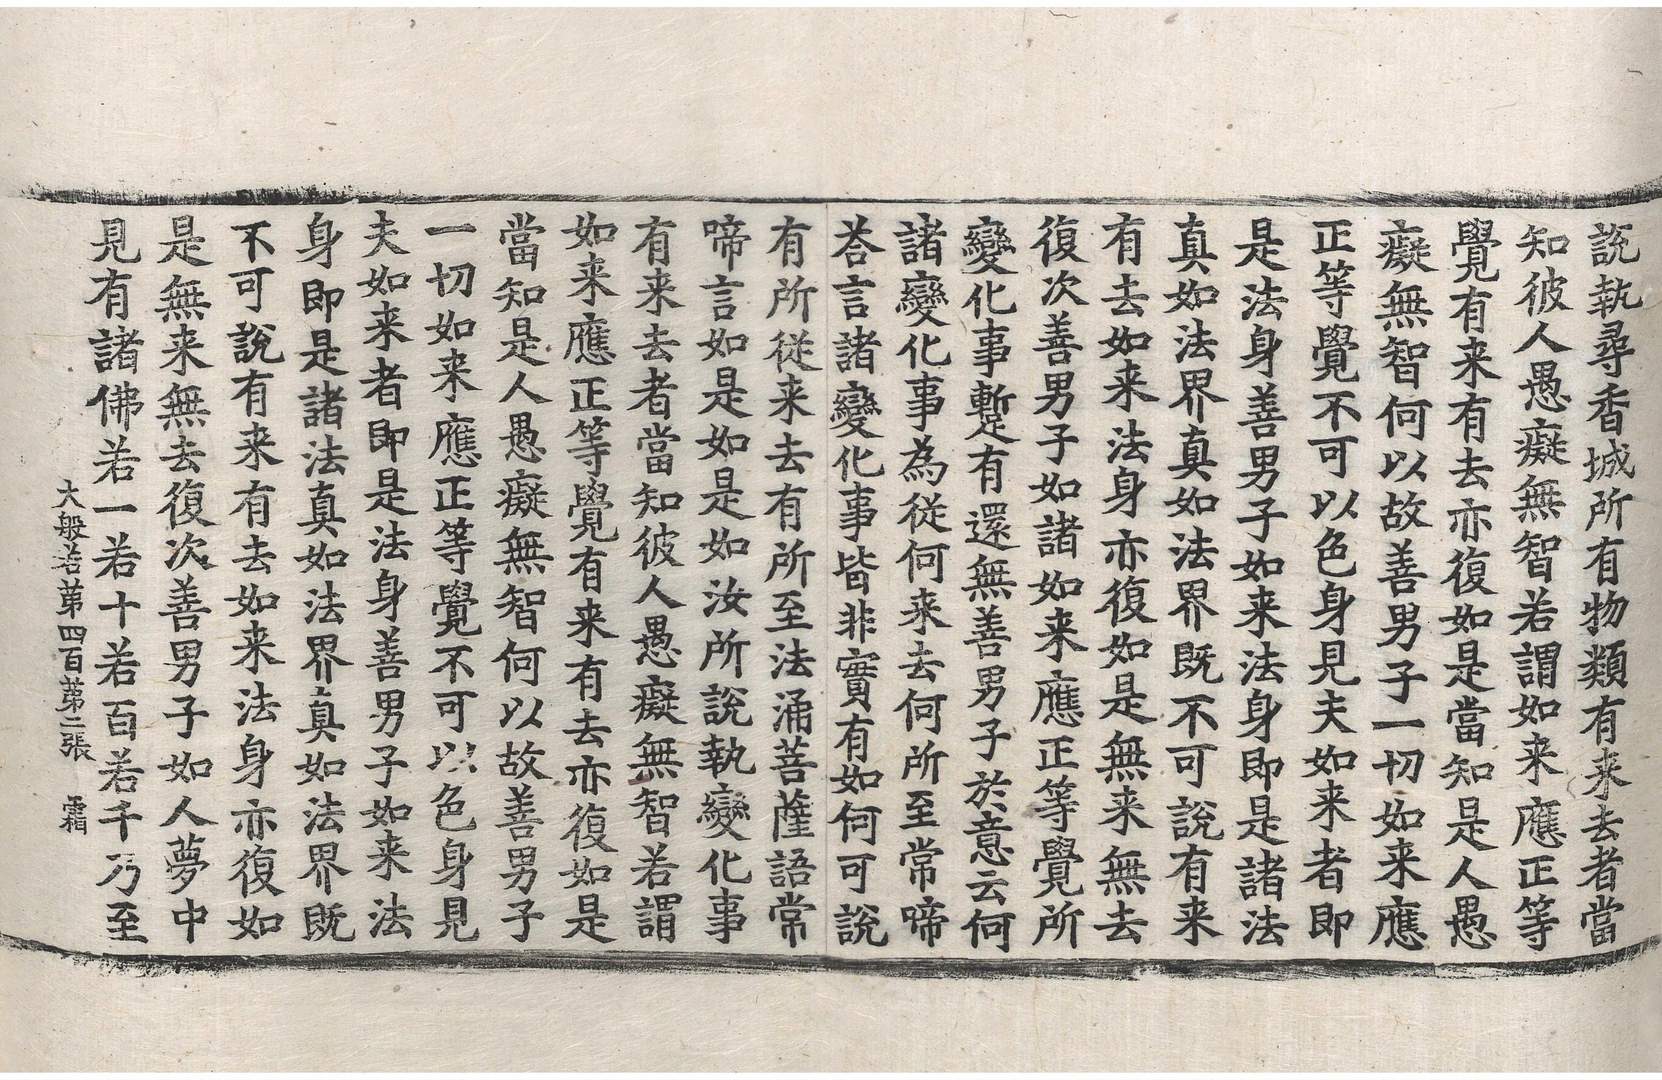 說執尋香城所有物類有来去者當
知彼人愚癡無智若謂如来應正等
覺有来有去亦復如是當知是人愚
癡無智何以故善男子一切如来應
正等覺不可以色身見夫如来者即
是法身善男子如来法身即是諸法
真如法界真如法界既不可說有来
有去如来法身亦復如是無来無去
復次善男子如諸如来應正等覺所
變化事蹔有還無善男子於意云何
諸變化事為従何来去何所至常啼
荅言諸變化事皆非實有如何可說
有所従来去有所至法涌菩薩語常
啼言如是如是如汝所說執變化事
有来去者當知彼人愚癡無智若謂
如来應正等覺有来有去亦復如是
當知是人愚癡無智何以故善男子
一切如来應正等覺不可以色身見
夫如来者即是法身善男子如来法
身即是諸法真如法界真如法界既
不可說有来有去如来法身亦復如
是無来無去復次善男子如人夢中
見有諸佛若一若十若百若千乃至
大般若苐四百苐二張 霜